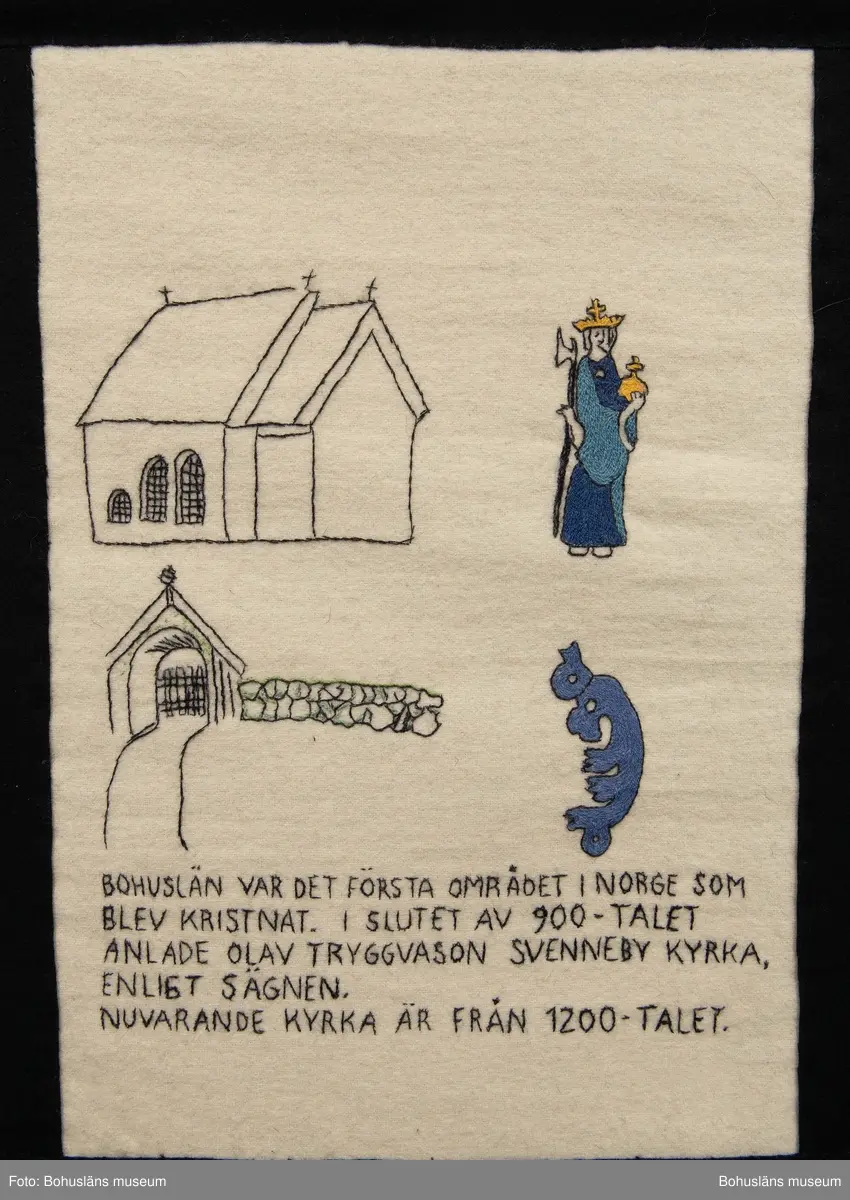 BOHUSLÄN VAR DET FÖRSTA OMRÅDET I NORGE SOM
BLEV KRISTNAT. I SLUTET AV 900-TALET
ANLADE OLAV TRYGGVASON SVENNEBY KYRKA,
ENLIGT SÄGNEN.
NUVARANDE KYRKA ÄR FRÅN 1200-TALET.
Foto: Bohusläns museum
Bohusläns museum